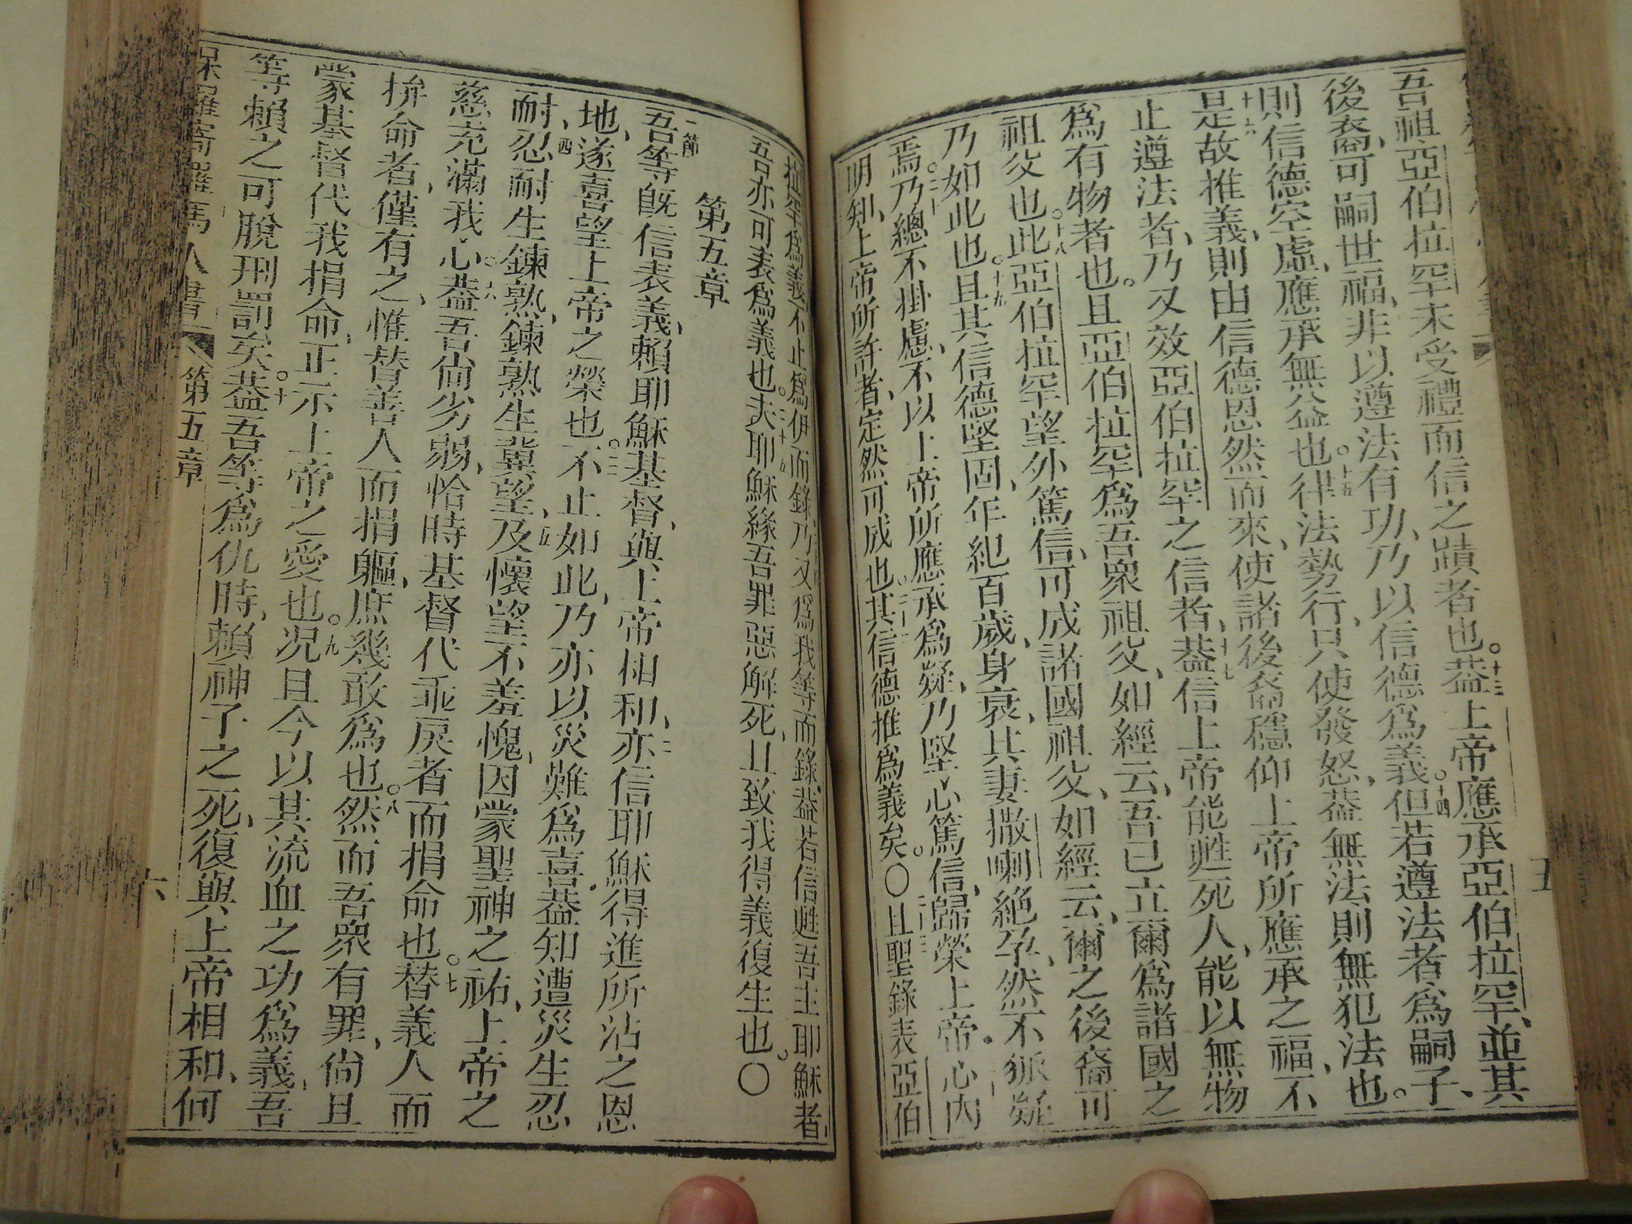 吾祖亞伯拉罕未受禮而信之蹟者也。十三蓋上帝應承亞伯拉罕、並其
後裔、可嗣世福、非以遵法有功、乃以信德為義。十四但若遵法者、為嗣子、
則信德空虛、應承無益也。十五律法勢行、只使發怒、蓋無法則無犯法也。
十六是故推義、則由信德恩然而來、使諸後裔穩仰上帝所應承之福、不
止遵法者、乃又效亞伯拉罕之信者、十七蓋信上帝能甦死人、能以無物
為有物者也。且亞伯拉罕為吾眾祖父、如經云、吾已立爾為諸國之
祖父也。十八此亞伯拉罕望外篤信、可成諸國祖父、如經云、爾之後裔可
乃如此也。十九且其信德堅固、年紀百歲、身衰、其妻撒喇絕孕、然不狐疑
焉。二十乃總不掛慮、不以上帝所應承為疑、乃堅心篤信、歸榮上帝。心內
明知、上帝所許者、定然可成也。其信德推為義矣。〇且聖錄表亞伯
拉罕為義、不止為伊而錄、乃又為我等而錄、蓋若信甦吾主耶穌者、
吾亦可表為義也。二十五夫耶穌緣吾罪惡解死、且致我得義復生也。〇
第五章
一節吾等既信表義、賴耶穌基督、與上帝相和、二亦信耶穌得進所沾之恩
地、遂喜望上帝之榮也。三不止如此、乃亦以災難為喜、蓋知遭災生忍
耐、四忍耐生鍊熟、鍊熟生冀望、五及懷望不羞愧、因蒙聖神之祐、上帝之
慈充滿我心。六蓋吾尚劣弱、恰時基督代乖戾者而捐命也。七替義人而
捹命者、僅有之、惟替善人而捐軀、庶幾敢為也。八然而吾眾有罪、尚且
蒙基督代我捐命、正示上帝之愛也。九况且今以其流血之功為義、吾
等賴之可脫刑罰矣。十蓋吾等為仇時、賴神子之死、復與上帝相和、何
保羅寄羅馬人書 第五章 六